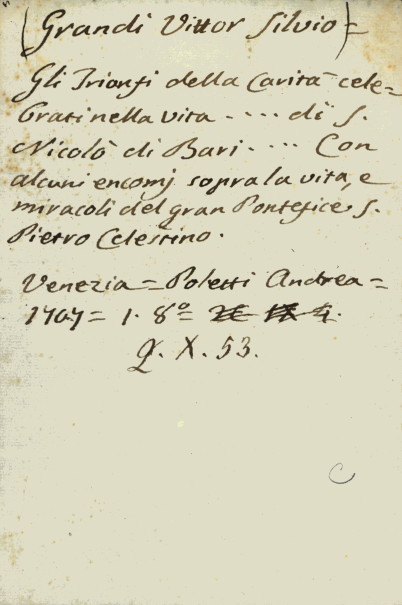 (Grandi Vittor Silvio)=
Gli Trionfi della Carità cele=
brati nella vita - - - - di S.
Nicolò di Bari - - - - Con
alcuni encomj sopra la vita, e
miracoli del gran Pontefice S.
Pietro Celestino.
Venezia = Poletti Andrea =
1707 = 1. 8º =
Q. X. 53.
C